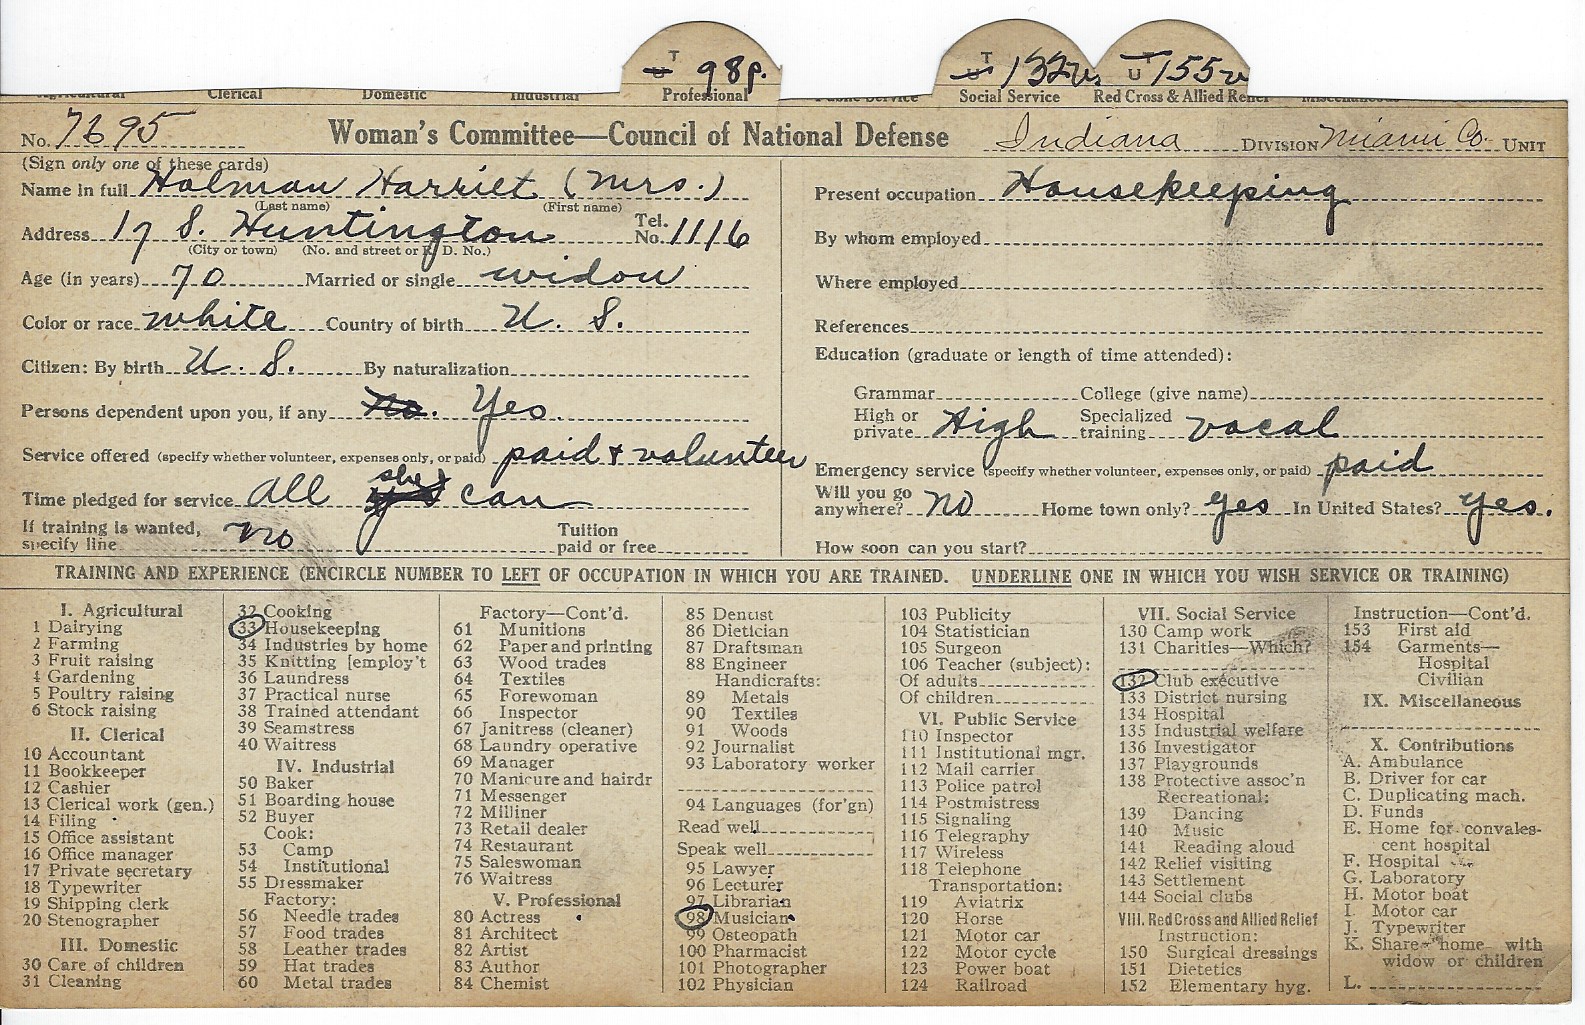 T U 98p. T U 132vs T U 155v
Agricultural Clerical Domestic Industrial Professional Public Service Social Service Red Cross & Allied Relief Miscellaneous
No. 7695 Woman's Committee—Council of National Defense Indiana DIVISION Miami Co. UNIT
(Sign only one of these cards)
Name in full Holman Harriet (Mrs.)
(Last name) (First name)
Address 17 S. Huntington Tel. No. 1116
(City or town) (No. and street or R. D. No.)
Age (in years) 70 Married or single widow
Color or race white Country of birth U. S.
Citizen: By birth U. S. By naturalization
Persons dependent upon you, if any no. Yes.
Service offered (specify whether volunteer, expenses only, or paid) paid & volunteer
Time pledged for service all she can
If training is wanted, specify line no Tuition paid or free
Present occupation Housekeeping
By whom employed
Where employed
References
Education (graduate or length of time attended):
Grammar College (give name)
High or private High Specialized training vocal
Emergency service (specify whether volunteer, expenses only, or paid) paid
Will you go anywhere? no Home town only? yes In United States? yes.
How soon can you start?
TRAINING AND EXPERIENCE (ENCIRCLE NUMBER TO LEFT OF OCCUPATION IN WHICH YOU ARE TRAINED. UNDERLINE ONE IN WHICH YOU WISH SERVICE OR TRAINING)
I. Agricultural
1 Dairying
2 Farming
3 Fruit raising
4 Gardening
5 Poultry raising
6 Stock raising
II. Clerical
10 Accountant
11 Bookkeeper
12 Cashier
13 Clerical work (gen.)
14 Filing
15 Office assistant
16 Office manager
17 Private secretary
18 Typewriter
19 Shipping clerk
20 Stenographer
III. Domestic
30 Care of children
31 Cleaning
32 Cooking
33 Housekeeping
34 Industries by home
35 Knitting [employ't
36 Laundress
37 Practical nurse
38 Trained attendant
39 Seamstress
40 Waitress
IV. Industrial
50 Baker
51 Boarding house
52 Buyer
Cook:
53 Camp
54 Institutional
55 Dressmaker
Factory:
56 Needle trades
57 Food trades
58 Leather trades
59 Hat trades
60 Metal trades
Factory—Cont'd.
61 Munitions
62 Paper and printing
63 Wood trades
64 Textiles
65 Forewoman
66 Inspector
67 Janitress (cleaner)
68 Laundry operative
69 Manager
70 Manicure and hairdr
71 Messenger
72 Milliner
73 Retail dealer
74 Restaurant
75 Saleswoman
76 Waitress
V. Professional
80 Actress
81 Architect
82 Artist
83 Author
84 Chemist
85 Dentist
86 Dietician
87 Draftsman
88 Engineer
Handicrafts:
89 Metals
90 Textiles
91 Woods
92 Journalist
93 Laboratory worker
94 Languages (for'gn)
Read well
Speak well
95 Lawyer
96 Lecturer
97 Librarian
98 Musician
99 Osteopath
100 Pharmacist
101 Photographer
102 Physician
103 Publicity
104 Statistician
105 Surgeon
106 Teacher (subject):
Of adults
Of children
VI. Public Service
110 Inspector
111 Institutional mgr.
112 Mail carrier
113 Police patrol
114 Postmistress
115 Signaling
116 Telegraphy
117 Wireless
118 Telephone
Transportation:
119 Aviatrix
120 Horse
121 Motor car
122 Motor cycle
123 Power boat
124 Railroad
VII. Social Service
130 Camp work
131 Charities—Which?
132 Club executive
133 District nursing
134 Hospital
135 Industrial welfare
136 Investigator
137 Playgrounds
138 Protective assoc'n
Recreational:
139 Dancing
140 Music
141 Reading aloud
142 Relief visiting
143 Settlement
144 Social clubs
VIII. Red Cross and Allied Relief
Instruction:
150 Surgical dressings
151 Dietetics
152 Elementary hyg.
Instruction—Cont'd.
153 First aid
154 Garments—
Hospital
Civilian
IX. Miscellaneous
X. Contributions
A. Ambulance
B. Driver for car
C. Duplicating mach.
D. Funds
E. Home for convales-
cent hospital
F. Hospital
G. Laboratory
H. Motor boat
I. Motor car
J. Typewriter
K. Share home with
widow or children
L.